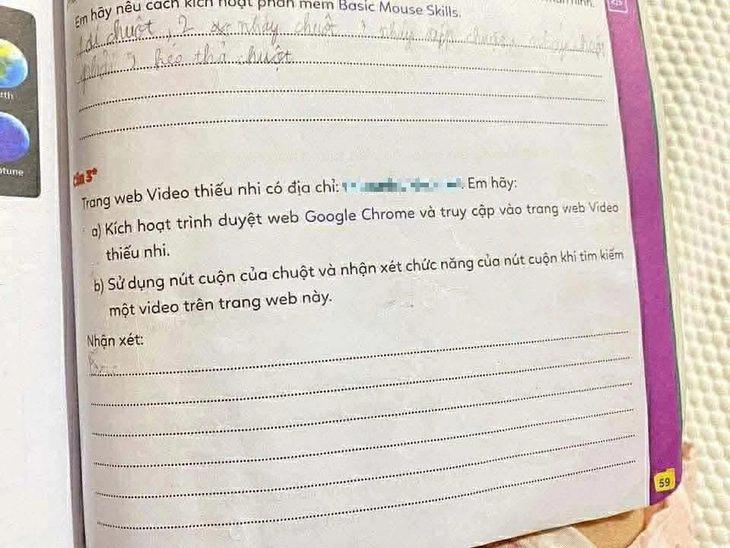 Em hãy nêu cách kích hoạt phần mềm Basic Mouse Skills.
chuột, 2 nháy chuột
kéo thả chuột
rth
ptune
Câu 3*
Trang web Video thiếu nhi có địa chỉ: Em hãy:
a) Kích hoạt trình duyệt web Google Chrome và truy cập vào trang web Video
thiếu nhi.
b) Sử dụng nút cuộn của chuột và nhận xét chức năng của nút cuộn khi tìm kiếm
một video trên trang web này.
Nhận xét:
59